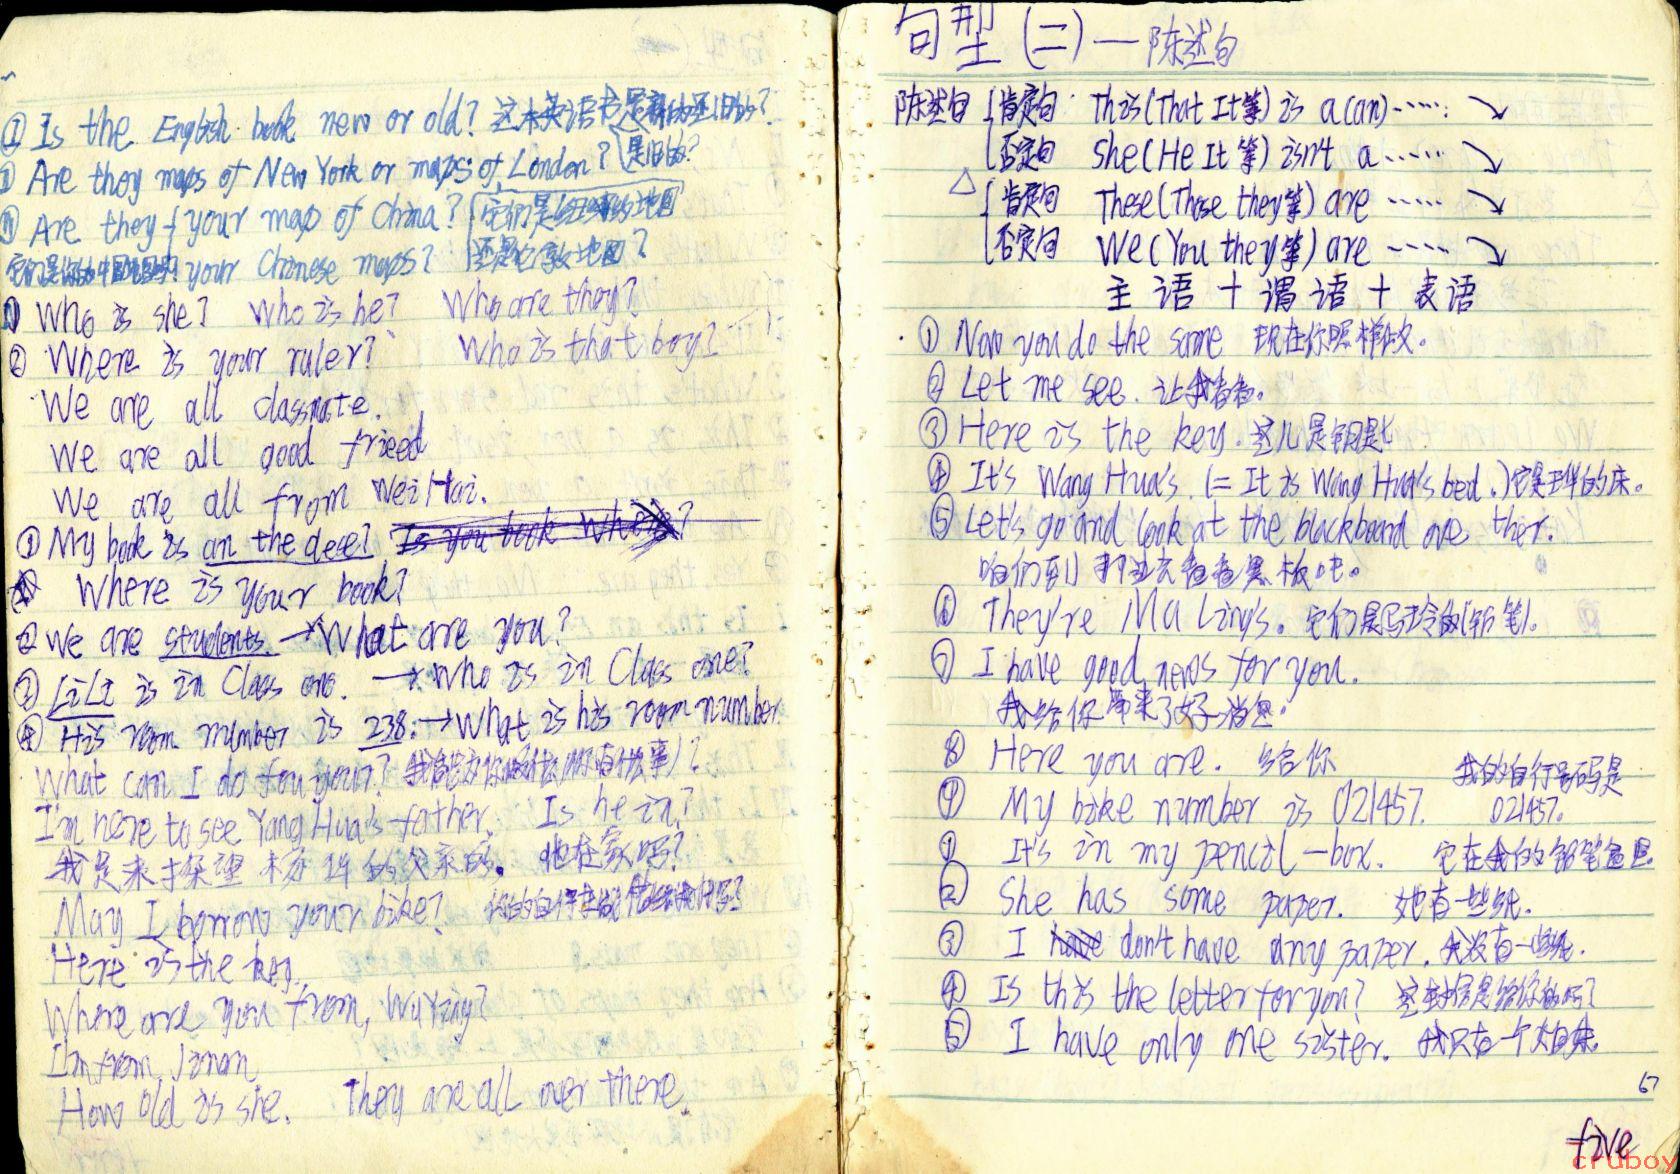 ① Is the English book new or old? 这本英语书是新的还旧的?
是旧的?
② Are they maps of New York or maps of London?
Are they your map of China? 它们是纽约的地图
它们是你的中国地图 your Chinese maps? 还是伦敦地图?
① Who is she? Who is he? Who are they?
② Where is your ruler? Who is that boy?
We are all classmate.
We are all good frieed
We are all from Wei Hai.
① My book is on the dece? Is you book Where?
Where is your book?
② We are students. → What are you?
③ LiLi is in Class one. → Who is in Class one?
④ His room number is 238. → What is his room number
What can I do fou your? 我能为你做什么(你有什么事)?
I'm here to see Yang Hua's father. Is he in?
我是来探望 的父亲的。 他在家吗?
May I borrow your bike? 你的自行车 借给我 吗?
Here is the key.
Where are you from, Wu Ying?
I'm from Jinan
How old is she. They are all over there.
句型(二)—陈述句
陈述句 肯定句 This(That It等) is a(an)······ ↘
否定句 She(He It等) isn't a ······ ↘
△ 肯定句 These(Those they等) are ······ ↘
否定句 We(You they等) are ······ ↘
主语+谓语+表语
① Now you do the same 现在你照样做。
② Let me see. 让我看看。
③ Here is the key. 这儿是钥匙
④ It's Wang Hua's. (= It is Wang Hua's bed.) 它是王华的床。
⑤ Let's go and look at the blackboard ove ther.
咱们到那边去看看黑板吧。
⑥ They're Ma Ling's. 它们是马玲的(钢笔)。
⑦ I have good news for you.
我给你带来了好消息。
⑧ Here you are. 给你
⑨ My bike number is 021457. 我的自行号码是
021457.
① It's in my pencil-box. 它在我的铅笔盒里
② She has some paper. 她有一些纸.
③ I have don't have any paper. 我没有一些纸.
④ Is this the letter for you? 这封信是给你的吗?
⑤ I have only one sister. 我只有一个 妹。
five
cruboy